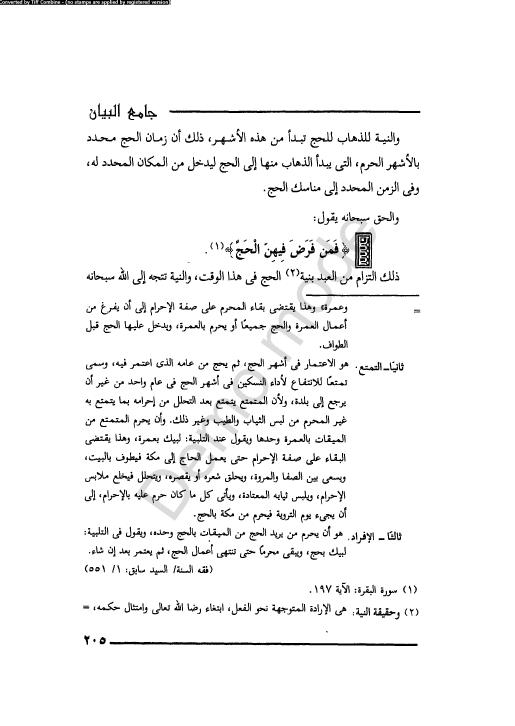 Converted by Tiff Combine - (no stamps are applied by registered version)
جامع البيان
والنية للذهاب للحج تبدأ من هذه الأشهر، ذلك أن زمان الحج محدد
بالأشهر الحرم، التى يبدأ الذهاب منها إلى الحج ليدخل من المكان المحدد له،
وفى الزمن المحدد إلى مناسك الحج.
والحق سبحانه يقول:
﴿ فَمَن فَرَضَ فِيهِنَّ الْحَجَّ﴾(١) .
ذلك التزام من العبد بنية(٢) الحج فى هذا الوقت، والنية تتجه إلى الله سبحانه
= وعمرة» وهذا يقتضى بقاء المحرم على صفة الإحرام إلى أن يفرغ من
أعمال العمرة والحج جميعًا أو يحرم بالعمرة، ويدخل عليها الحج قبل
الطواف.
ثانيًا ـ التمتع. هو الاعتمار فى أشهر الحج، ثم يحج من عامه الذى اعتمر فيه، وسمى
تمتعًا للانتفاع لأداء النسكين فى أشهر الحج فى عام واحد من غير أن
يرجع إلى بلدة، ولأن المتمتع يتمتع بعد التحلل من إحرامه بما يتمتع به
غير المحرم من لبس الثياب والطيب وغير ذلك. وأن يحرم المتمتع من
الميقات بالعمرة وحدها ويقول عند التلبية: لبيك بعمرة، وهذا يقتضى
البقاء على صفة الإحرام حتى يعمل الحاج إلى مكة فيطوف بالبيت،
ويسعى بين الصفا والمروة، ويحلق شعره أو يقصره، ويتحلل فيخلع ملابس
الإحرام، ويلبس ثيابه المعتادة، ويأتى كل ما كان حرم عليه بالإحرام، إلى
أن يجىء يوم التروية فيحرم من مكة بالحج.
ثالثًا ـ الإفراد. هو أن يحرم من يريد الحج من الميقات بالحج وحده، ويقول فى التلبية:
لبيك بحج، ويبقى محرمًا حتى تنتهى أعمال الحج، ثم يعتمر بعد إن شاء.
(فقه السنة/ السيد سابق: ١/ ٥٥١)
(١) سورة البقرة: الآية ١٩٧.
(٢) وحقيقة النية: هى الإرادة المتوجهة نحو الفعل، ابتغاء رضا الله تعالى وامتثال حكمه، =
٢٠٥
Demo mode